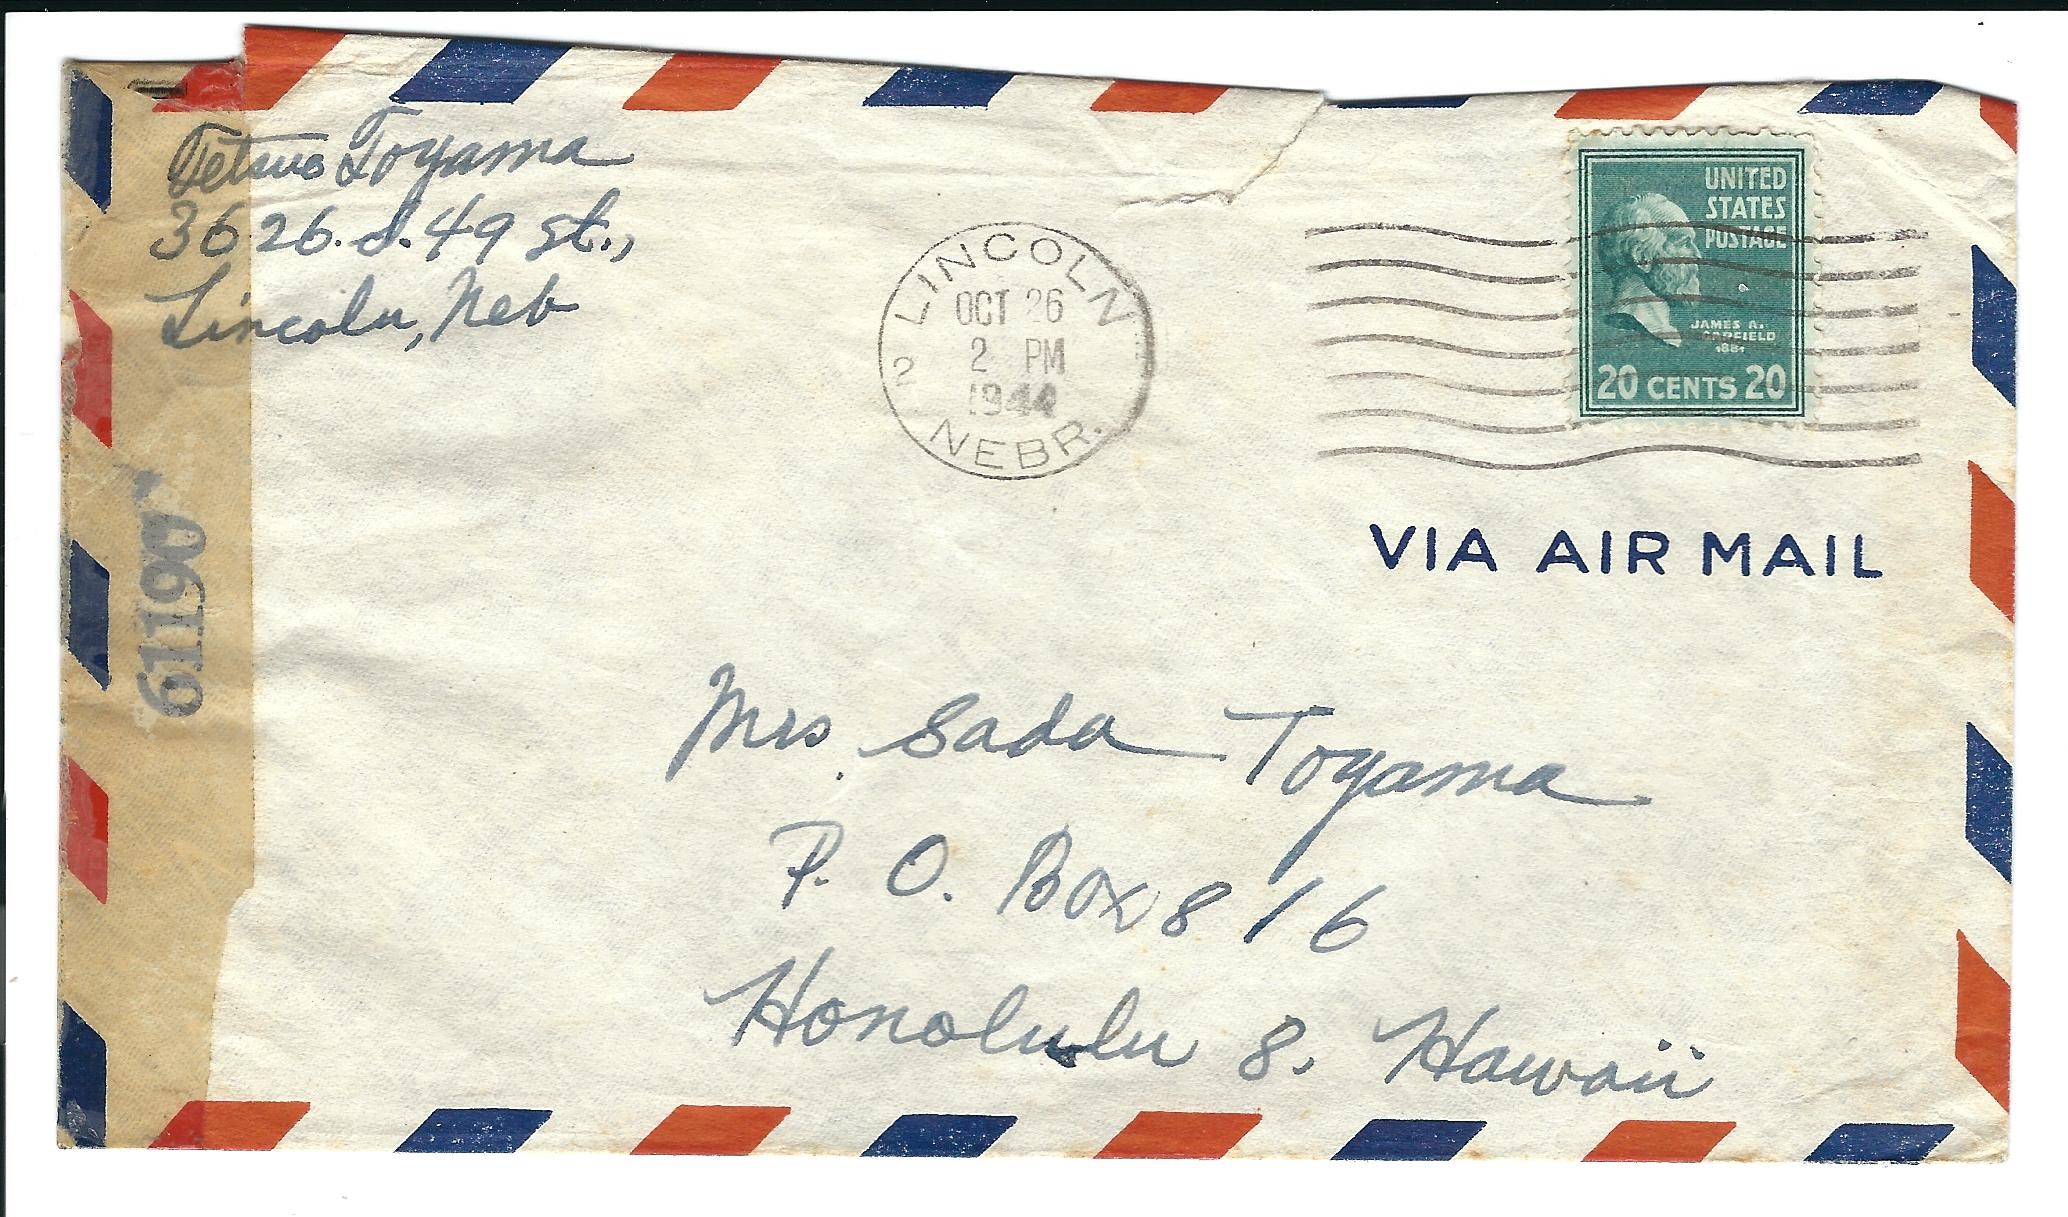 Tetsuo Toyama
3626. S. 49 st.,
Lincoln, Neb
LINCOLN
OCT 26
2 PM
1944
2
NEBR.
UNITED
STATES
POSTAGE
JAMES A.
GARFIELD
1881
20 CENTS 20
VIA AIR MAIL
61190
Mrs. Sada Toyama
P. O. Box 816
Honolulu 8. Hawaii